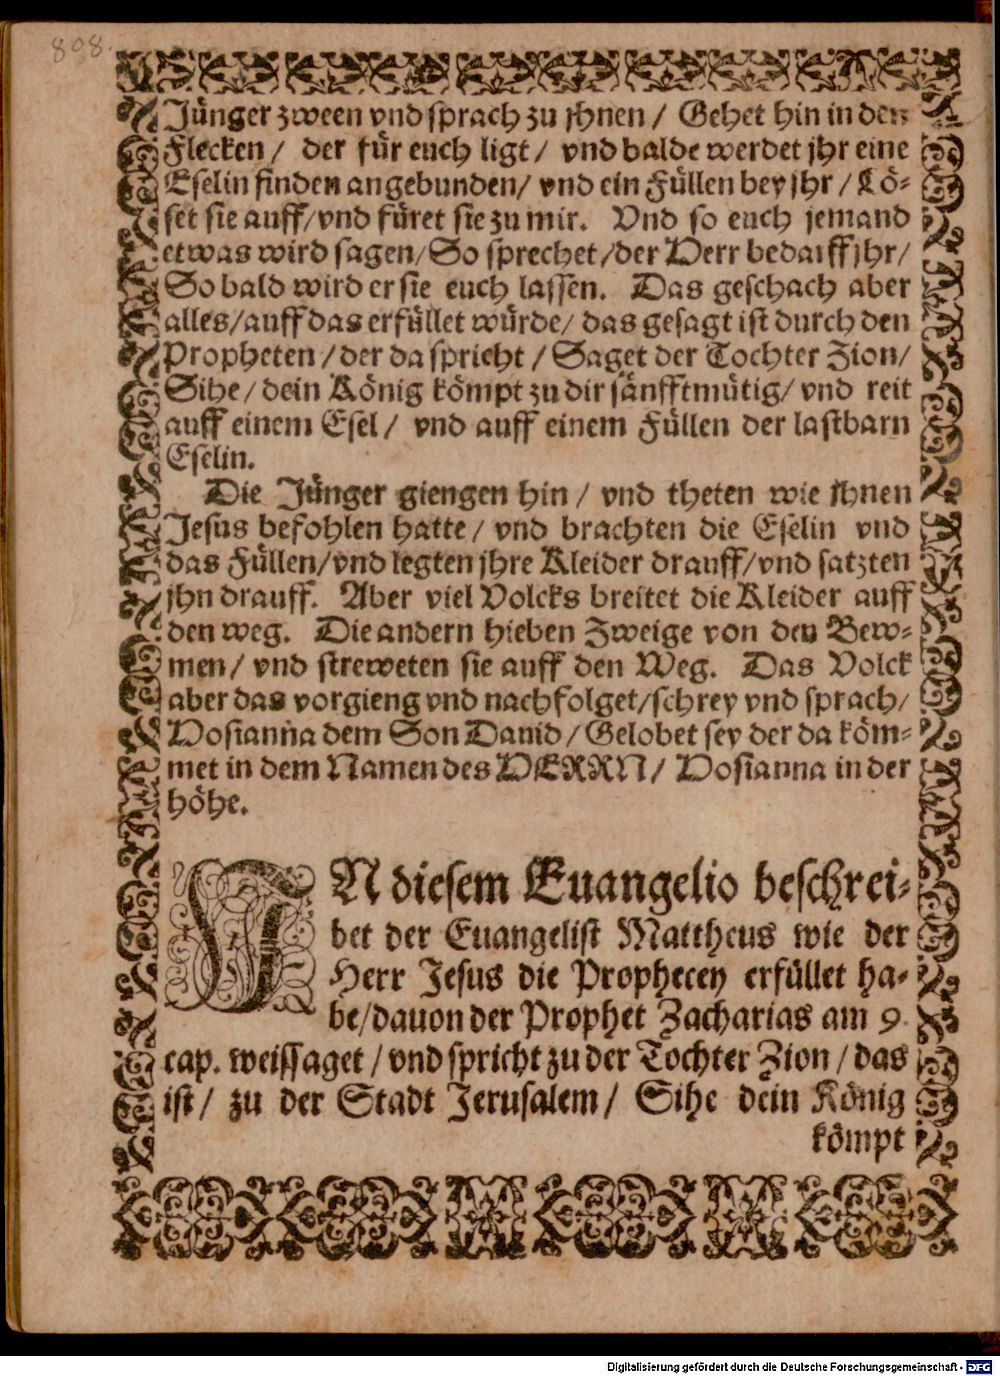 808.
Jünger zween vnd sprach zu jhnen / Gehet hin in den
Flecken / der für euch ligt / vnd balde werdet jhr eine
Eselin finden angebunden / vnd ein Füllen bey jhr / Lö⸗
set sie auff / vnd füret sie zu mir. Vnd so euch jemand
etwas wird sagen / So sprechet / der Herr bedarff jhr /
So bald wird er sie euch lassen. Das geschach aber
alles / auff das erfüllet würde / das gesagt ist durch den
Propheten / der da spricht / Saget der Tochter Zion /
Sihe / dein König kömpt zu dir sänfftmütig / vnd reit
auff einem Esel / vnd auff einem Füllen der lastbarn
Eselin.
Die Jünger giengen hin / vnd theten wie jhnen
Jesus befohlen hatte / vnd brachten die Eselin vnd
das Füllen / vnd legten jhre Kleider drauff / vnd satzten
jhn drauff. Aber viel Volcks breitet die Kleider auff
den weg. Die andern hieben Zweige von den Bew⸗
men / vnd streweten sie auff den Weg. Das Volck
aber das vorgieng vnd nachfolget / schrey vnd sprach /
Hosianna dem Son Dauid / Gelobet sey der da köm⸗
met in dem Namen des HERRN / Hosianna in der
höhe.
JN diesem Euangelio beschrei⸗
bet der Euangelist Mattheus wie der
Herr Jesus die Prophecey erfüllet ha⸗
be / dauon der Prophet Zacharias am 9.
cap. weissaget / vnd spricht zu der Tochter Zion / das
ist / zu der Stadt Jerusalem / Sihe dein König
kömpt
Digitalisierung gefördert durch die Deutsche Forschungsgemeinschaft - DFG